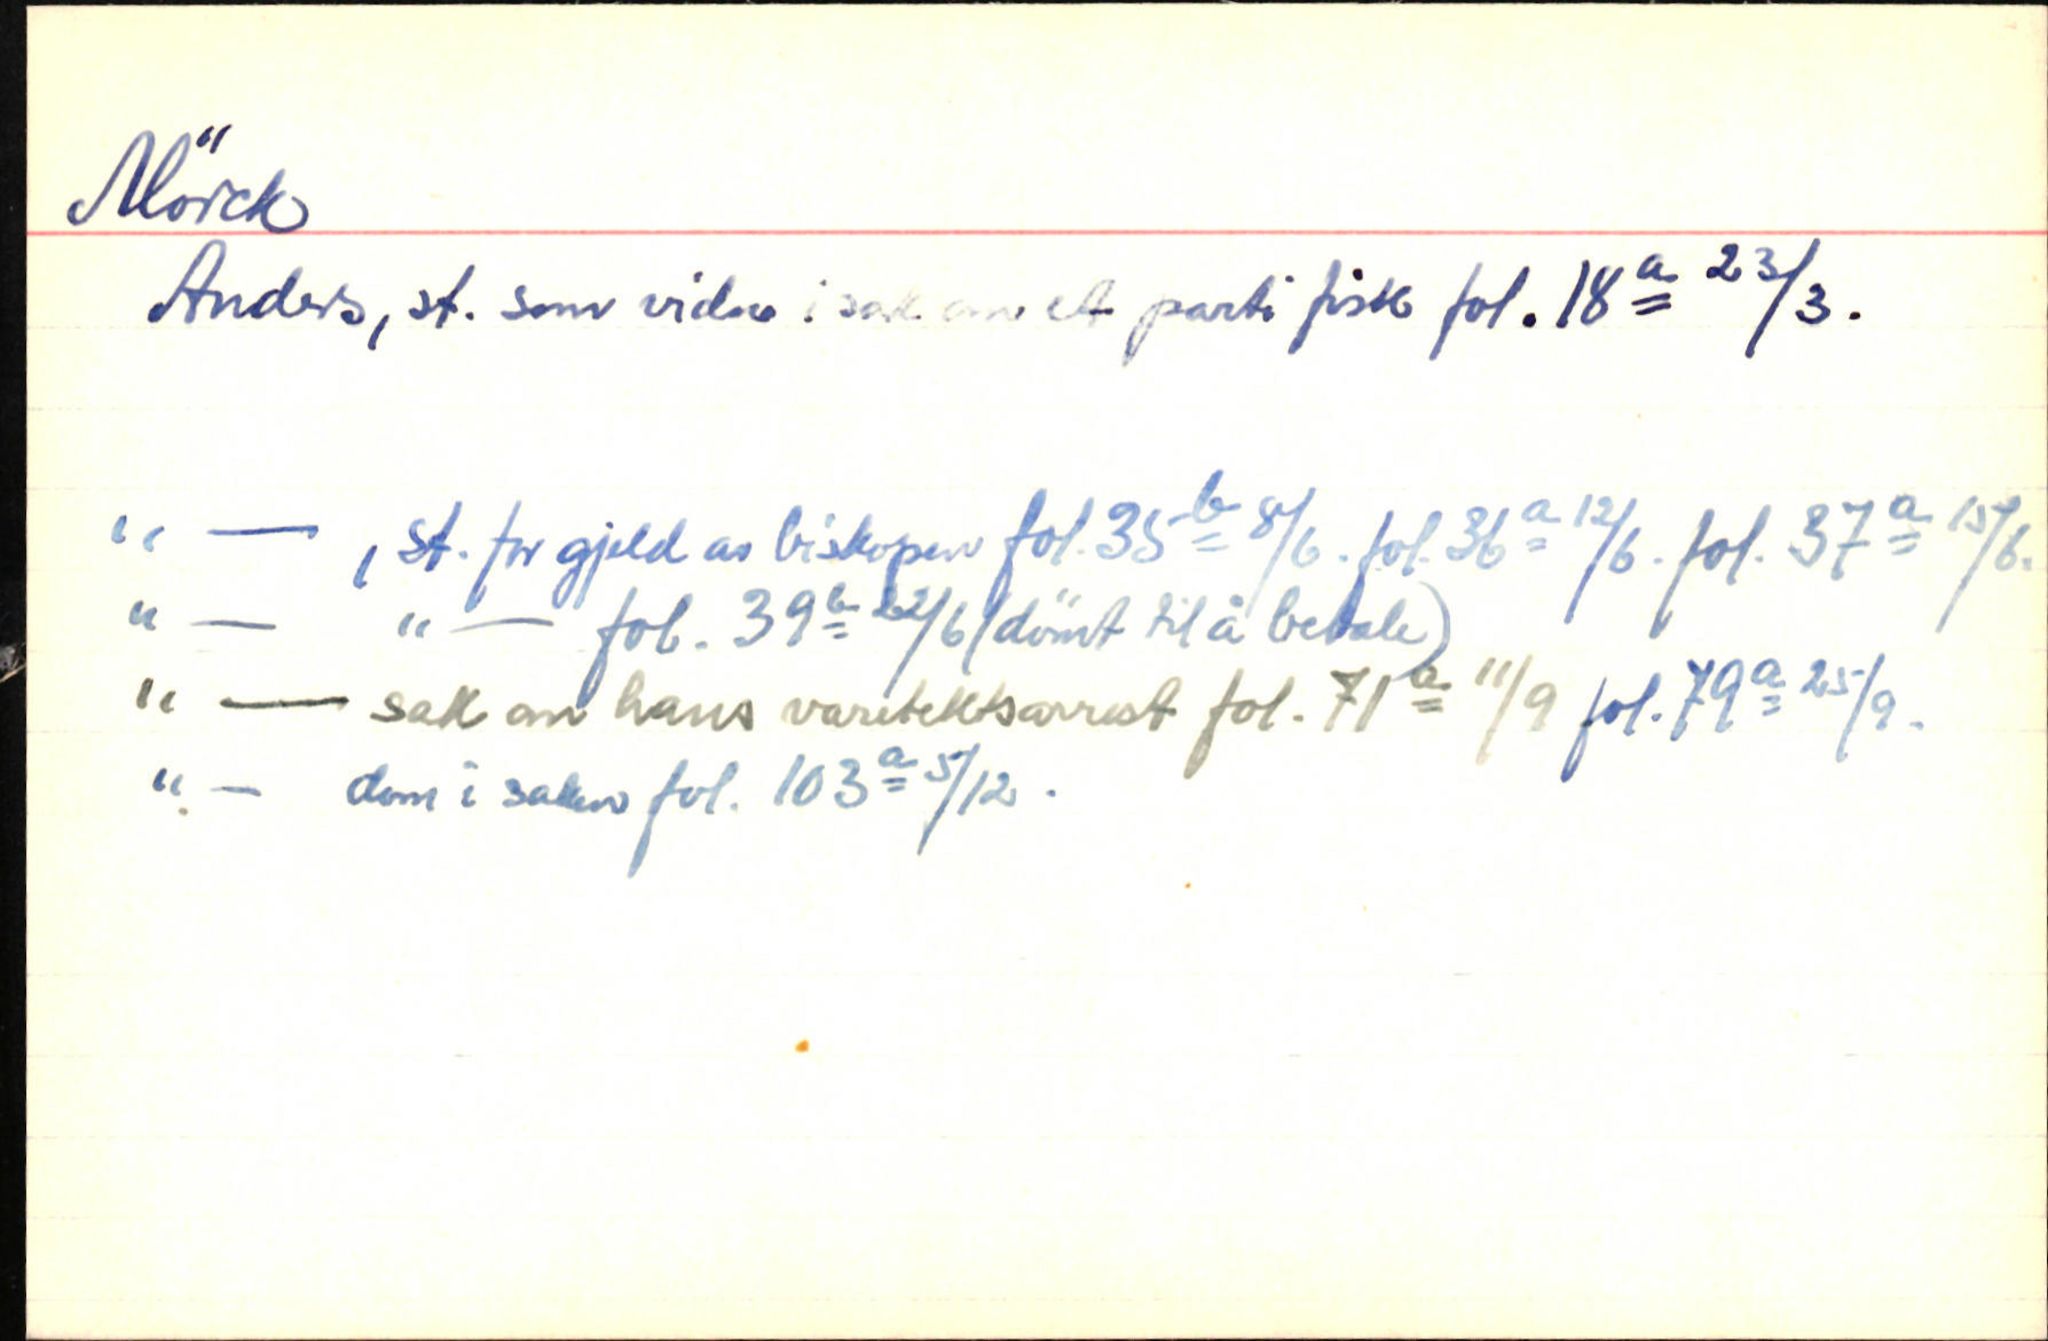 Mörck
Anders, st. som vidne i sak om et parti fisk fol. 18a 23/3.
" — , st. for gjeld av biskopen fol. 35b 8/6. fol. 36a 12/6. fol. 37a 15/6.
" — " — fol. 39b 22/6 (dömt til å betale)
" — sak om hans varetektsarrest fol. 71a 11/9 fol. 79a 25/9.
" — dom i saken fol. 103a 5/12.